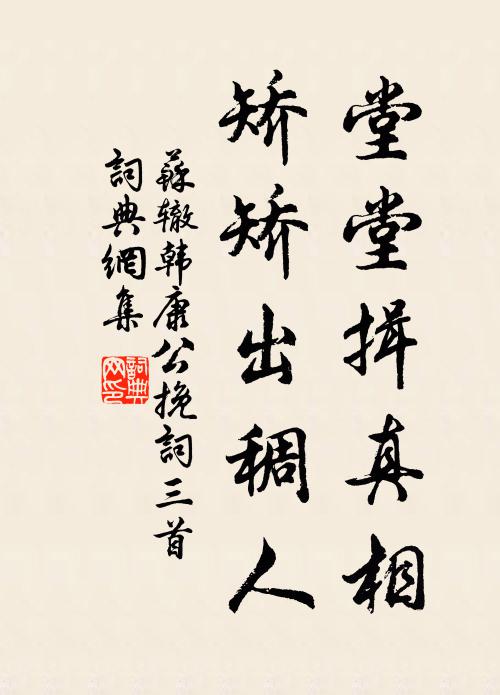 堂堂揖真相
矫矫出稠人
蘇辙韩康公挽詞三首
詞典網集
詞典网印